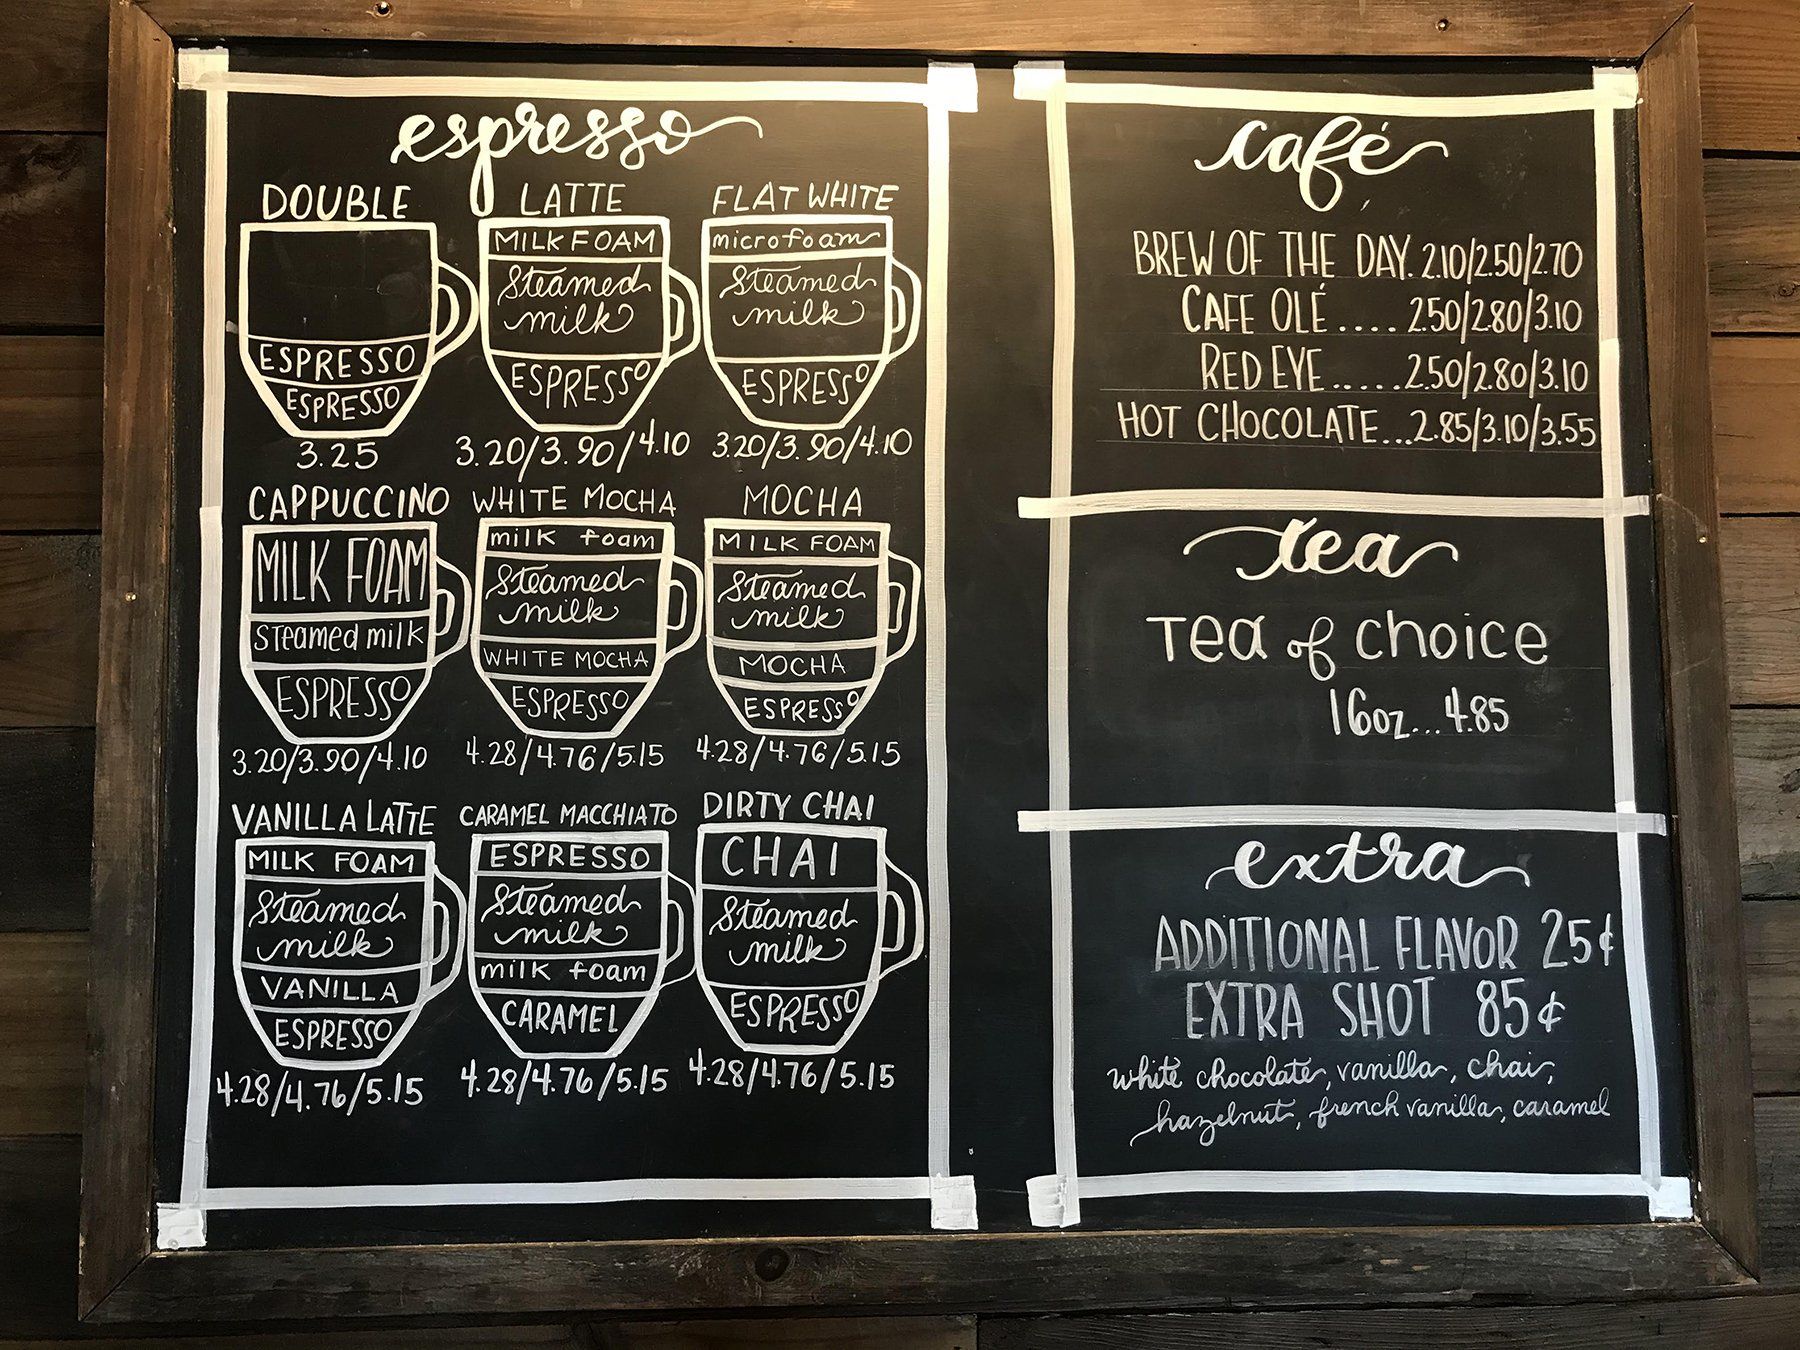 espresso
DOUBLE
ESPRESSO
ESPRESSO
3.25
LATTE
MILK FOAM
Steamed
milk
ESPRESSO
3.20/3.90/4.10
FLAT WHITE
microfoam
Steamed
milk
ESPRESSO
3.20/3.90/4.10
CAPPUCCINO
MILK FOAM
Steamed milk
ESPRESSO
3.20/3.90/4.10
WHITE MOCHA
milk foam
Steamed
milk
WHITE MOCHA
ESPRESSO
4.28/4.76/5.15
MOCHA
MILK FOAM
Steamed
milk
MOCHA
ESPRESSO
4.28/4.76/5.15
VANILLA LATTE
MILK FOAM
Steamed
milk
VANILLA
ESPRESSO
4.28/4.76/5.15
CARAMEL MACCHIATO
ESPRESSO
Steamed
milk
milk foam
CARAMEL
4.28/4.76/5.15
DIRTY CHAI
CHAI
Steamed
milk
ESPRESSO
4.28/4.76/5.15
café
BREW OF THE DAY. 2.10/2.50/2.70
CAFE OLÉ.... 2.50/2.80/3.10
RED EYE.....2.50/2.80/3.10
HOT CHOCOLATE...2.85/3.10/3.55
tea
Tea of choice
16oz...4.85
extra
ADDITIONAL FLAVOR 25¢
EXTRA SHOT 85¢
white chocolate, vanilla, chai,
hazelnut, french vanilla, caramel